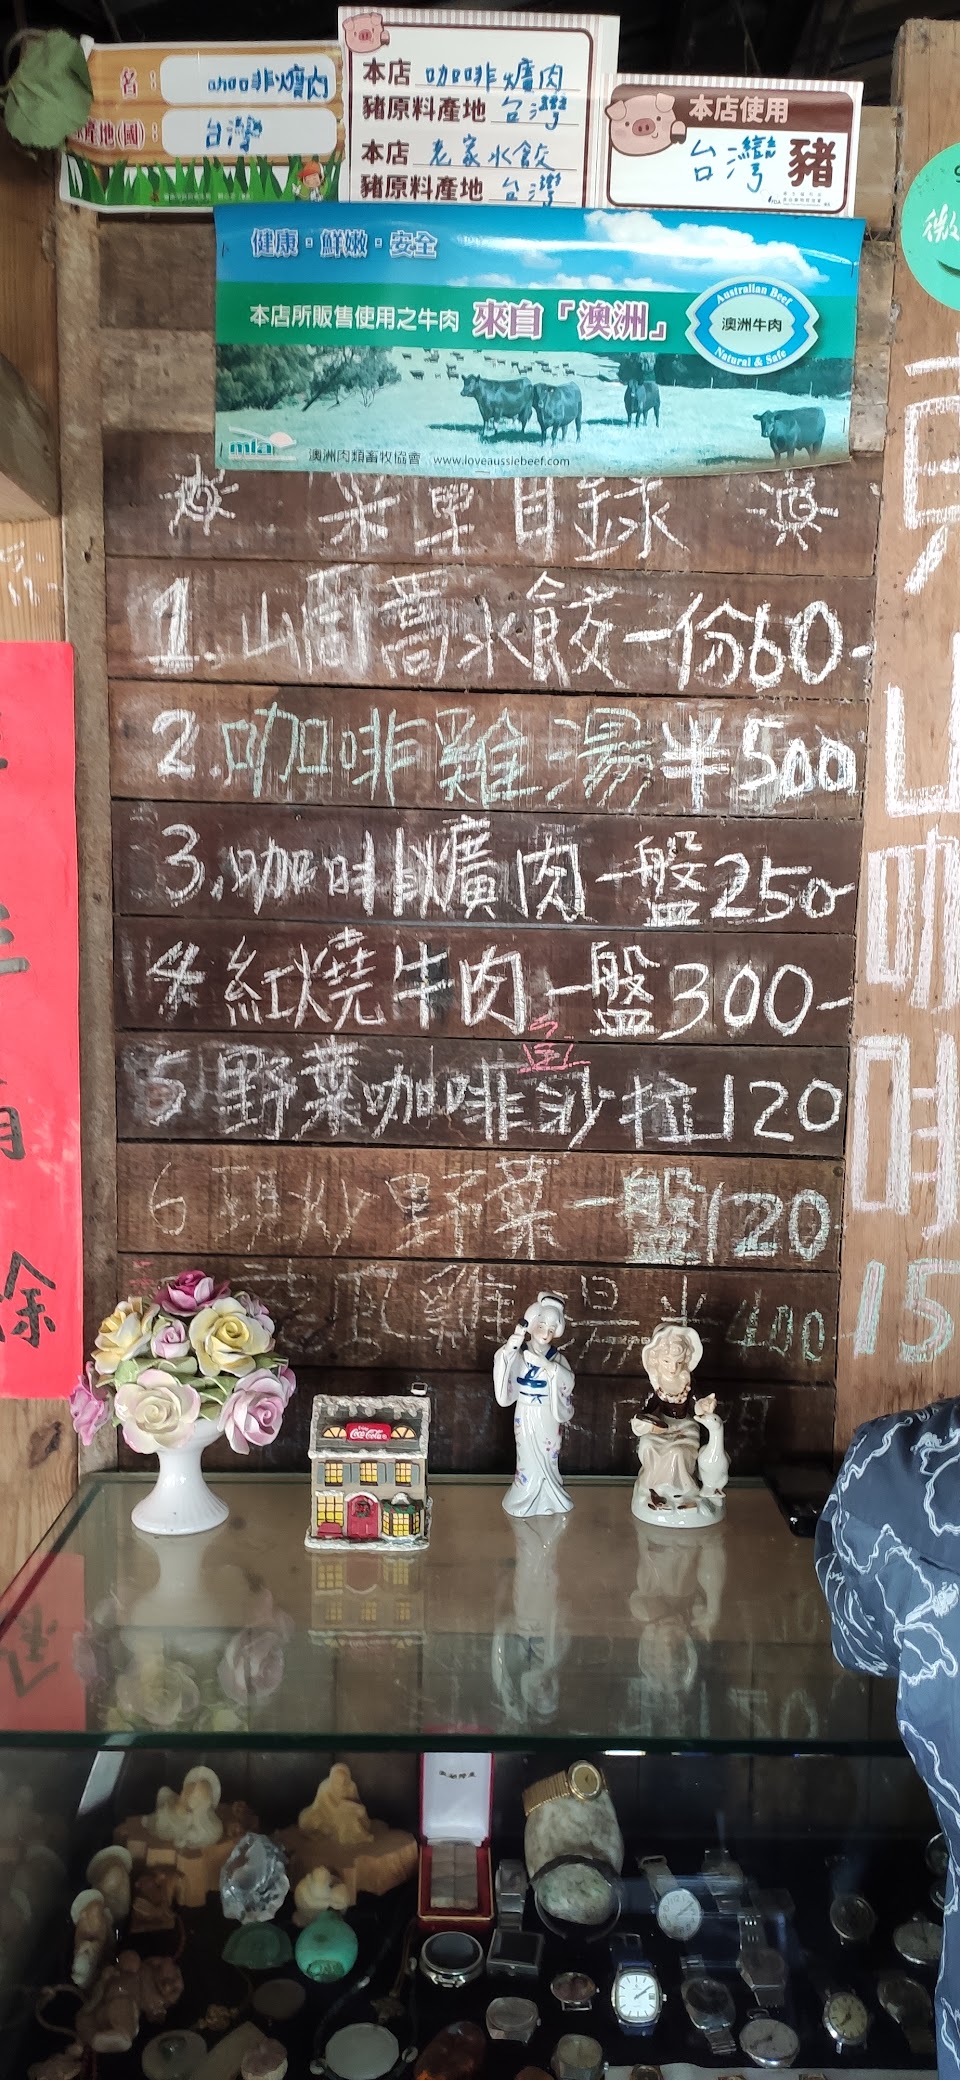 名：咖啡爌肉
產地(國)：台灣
本店 咖啡爌肉
豬原料產地 台灣
本店 老家水餃
豬原料產地 台灣
本店使用
台灣豬
健康·鮮嫩·安全
本店所販售使用之牛肉 來自「澳洲」
Australian Beef
澳洲牛肉
Natural & Safe
mla
澳洲肉類畜牧協會 www.loveaussiebeef.com
菜單目錄
1.山茼蒿水餃一份60-
2.咖啡雞湯半500
3.咖啡爌肉一盤250-
4 紅燒牛肉一盤300-
5 野菜咖啡沙拉120
6 現炒野菜一盤120
雞湯半400
微
咖
啡
15
餘
Coca-Cola